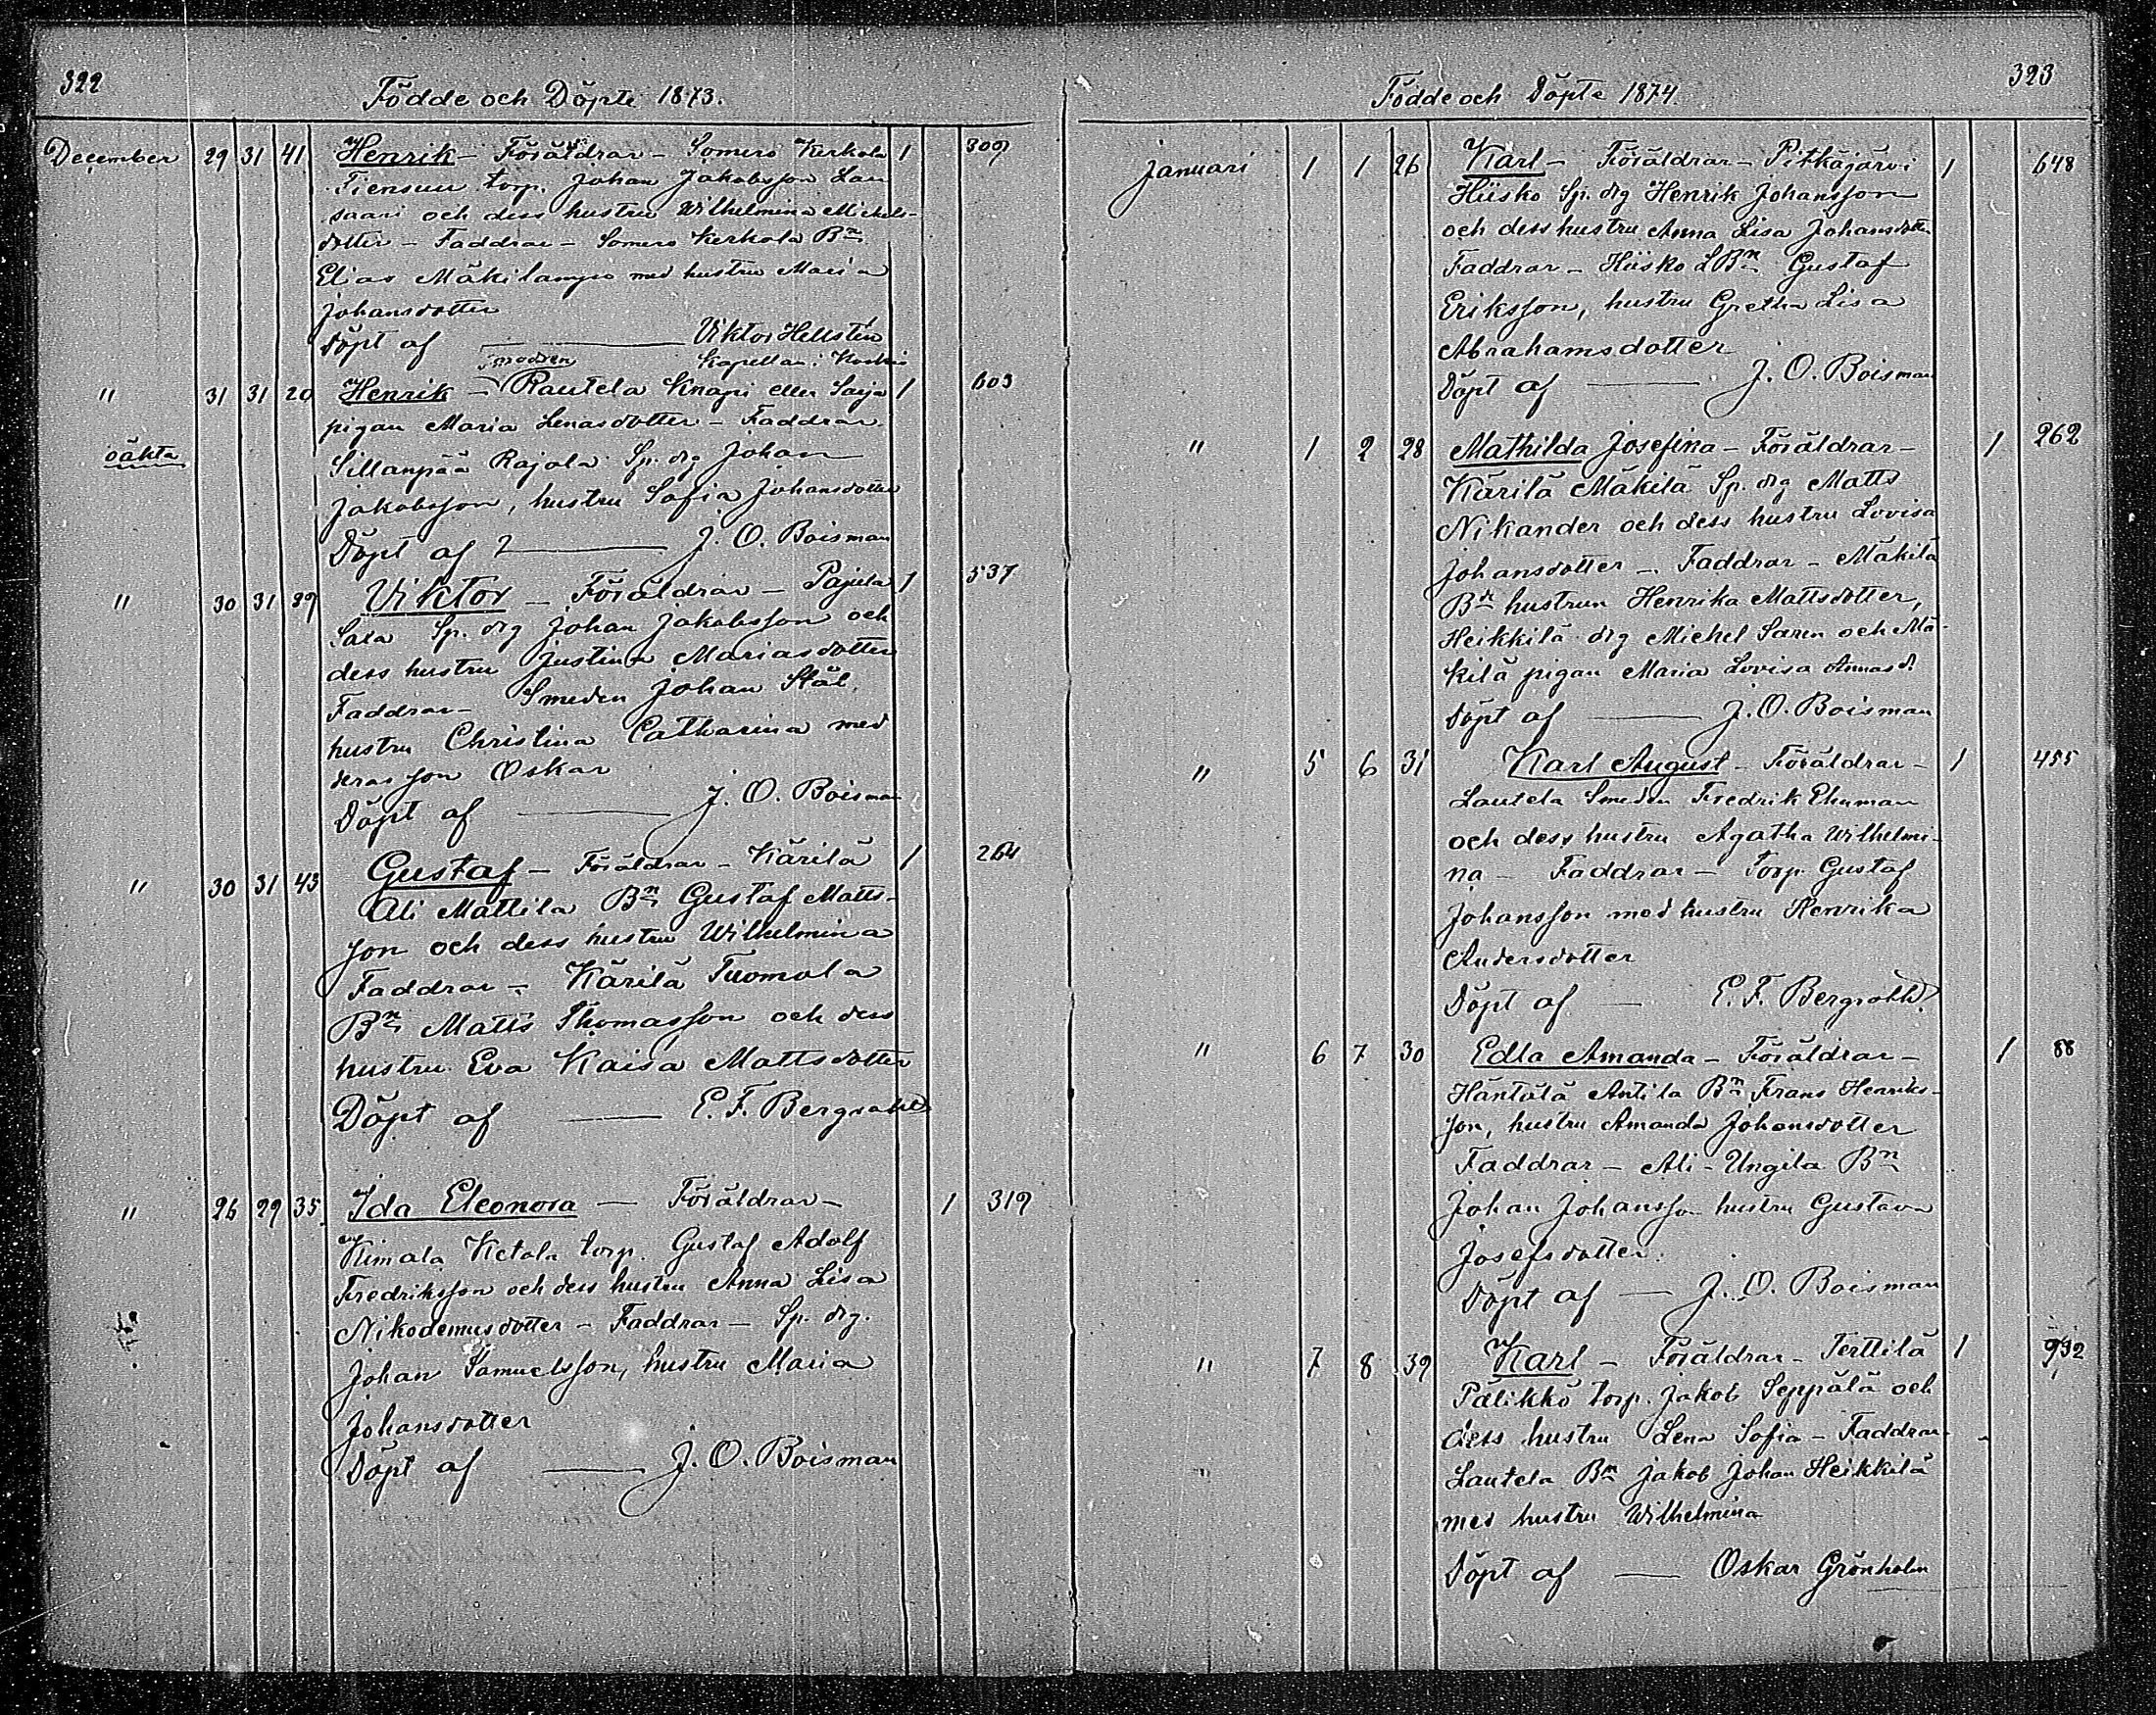 322
Födde och Döpte 1873.
December 29 31 41 Henrik - Föräldrar - Somero Kerkola 1 309
Tiensuu torp. Johan Jakobsson Lau
saari och dess hustru Wilhelmina Michels-
dotter - Faddrar - Somero Kerkola Bn
Elias Mäkilampo med hustru Maria
Johansdotter
Döpt af — Viktor Hellstén
Kapellan i Koskis
" 31 31 20 Henrik - modren Rautela Knapi eller Saija 1 603
oäkta
pigan Maria Lenasdotter - Faddrar
Sillanpää Rajala Sp. drg Johan
Jakobsson, hustru Sofia Johansdotter
Döpt af — J. O. Boisman
" 30 31 39 Viktor - Föräldrar - Pajula 1 537
Sp. drg Johan Jakobsson och
dess hustru Justina Mariasdotter
Faddrar - Smeden Johan Stål,
hustru Christina Catharina med
deras son Oskar
Döpt af — J. O. Boisman
" 30 31 43 Gustaf - Föräldrar - Kärilä 1 264
Ali Mattila Bn Gustaf Matts-
son och dess hustru Wilhelmina
Faddrar - Kärilä Tuomola
Bn Matts Thomasson och dess
hustru Eva Kaisa Mattsdotter
Döpt af — E. F. Bergroth
" 26 29 35 Ida Eleonora - Föräldrar - 1 319
Kimala Ketola torp. Gustaf Adolf
Fredriksson och dess hustru Anna Lisa
Nikodemusdotter - Faddrar - Sp. drg.
Johan Samuelsson, hustru Maria
Johansdotter
Döpt af — J. O. Boisman
323
Födde och Döpte 1874.
Januari 1 1 26 Karl - Föräldrar - Pitkäjärvi 1 648
Hiisko Sp. drg Henrik Johansson
och dess hustru Anna Lisa Johansdotter
Faddrar - Hiisko LBn Gustaf
Eriksson, hustru Gretha Lisa
Abrahamsdotter
Döpt af — J. O. Boisman
" 1 2 28 Mathilda Josefina - Föräldrar - 1 262
Kärilä Mäkilä Sp. drg Matts
Nikander och dess hustru Lovisa
Johansdotter - Faddrar - Mäkilä
Bn hustrun Henrika Mattsdotter,
Heikkilä drg Michel Saren och Mä-
kilä pigan Maria Lovisa Annasd.
Döpt af — J. O. Boisman
" 5 6 31 Karl August - Föräldrar - 1 455
Lautela Smeden Fredrik Ehnman
och dess hustru Agatha Wilhelmi-
na - Faddrar - Torp. Gustaf
Johansson med hustru Henrika
Andersdotter
Döpt af — E. F. Bergroth
" 6 7 30 Edla Amanda - Föräldrar - 1 88
Häntälä Antila Bn Frans Henriks-
son, hustru Amanda Johansdotter
Faddrar - Ali-Ungila Bn
Johan Johansson hustru Gustava
Josefsdotter.
Döpt af — J. O. Boisman
" 7 8 39 Karl - Föräldrar - Terttilä 1 932
Pälikkö torp. Jakob Seppälä och
dess hustru Lena Sofia - Faddrar -
Lautela Bn Jakob Johan Heikkilä
med hustru Wilhelmina
Döpt af — Oskar Grönholm